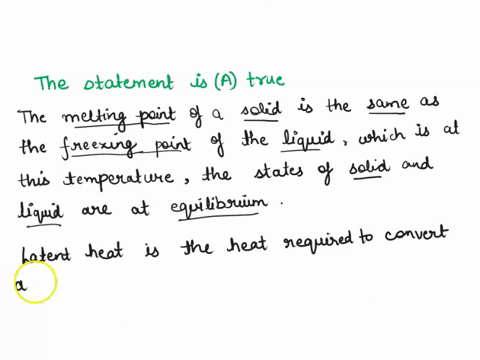 The statement is (A) true
The melting point of a solid is the same as
the freezing point of the liquid, which is at
this temperature, the states of solid and
liquid are at equilibrium.
Latent heat is the heat required to convert
a